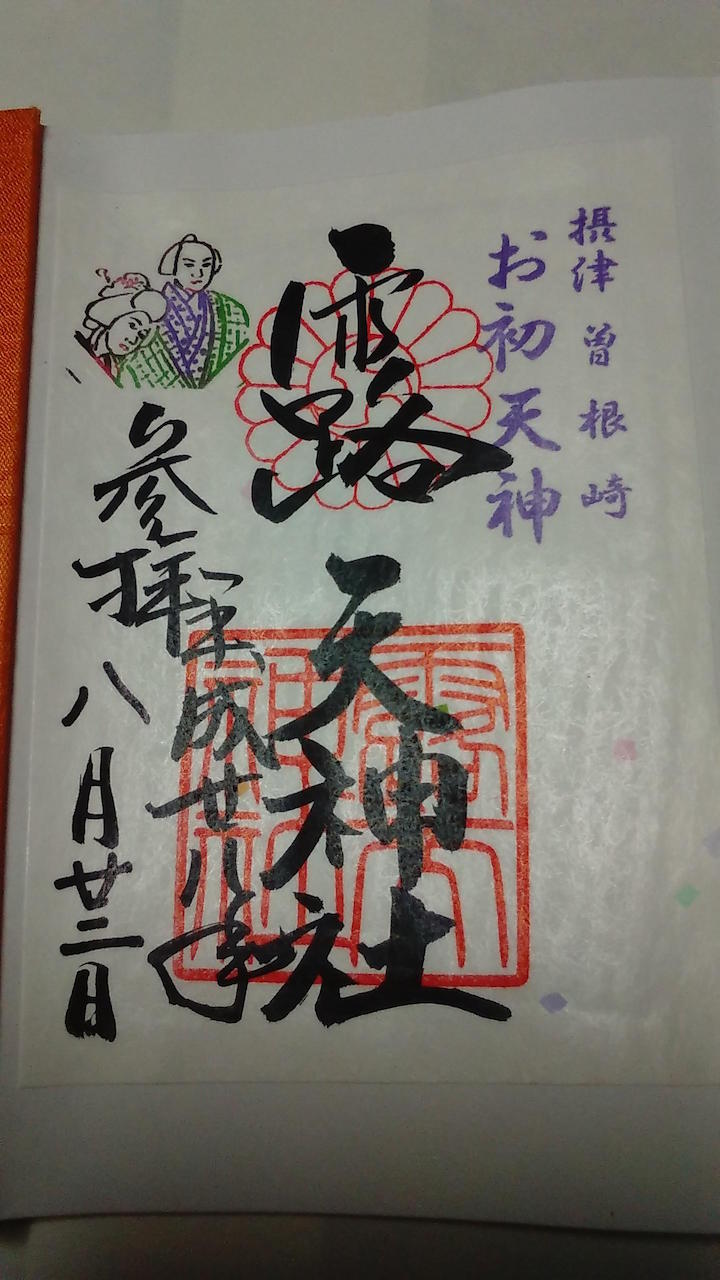 摂津 曽根崎
お初天神
露 天神社
平成廿八年
参拝 八月廿二日